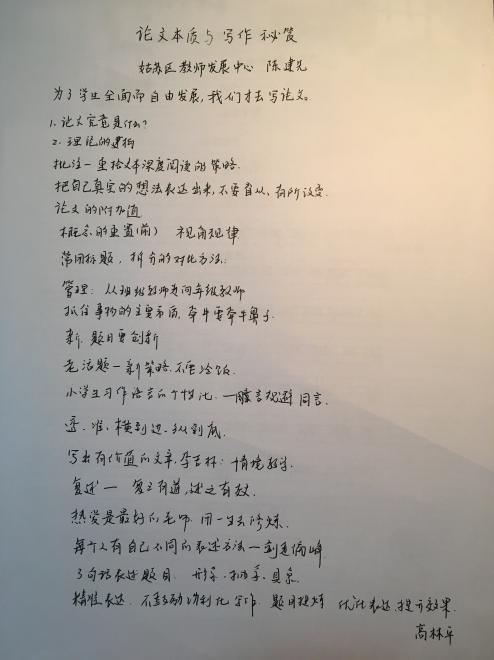 论文本质与写作秘笈
姑苏区教师发展中心 陈建先
为了学生全面而自由发展,我们才去写论文。
1. 论文究竟是什么?
2. 理论的建构
批注一重拾文本深度阅读的策略.
把自己真实的想法表达出来,不要盲从、有所改变.
论文的附加值
概念的重置(前) 视角规律
常用标题,拆分的对比方法:
管理:从班级教师走向年级教师
抓住事物的主要矛盾,牵牛要牵牛鼻子.
新.题目要创新
老话题一新策略.不要冷饭.
小学生习作语言的个性化.一膛言规避同言.
透.准.横到边.纵到底.
写出有价值的文章.李吉林:情境教学.
复述一 复之有道,述之有效.
热爱是最好的老师.用一生去修炼.
每个人有自己不同的表述方法一剑走偏峰
3句话表述题目. 形象.抽象.具象.
精准表达. 题目提炼 优化表达.提升效果.
高林平